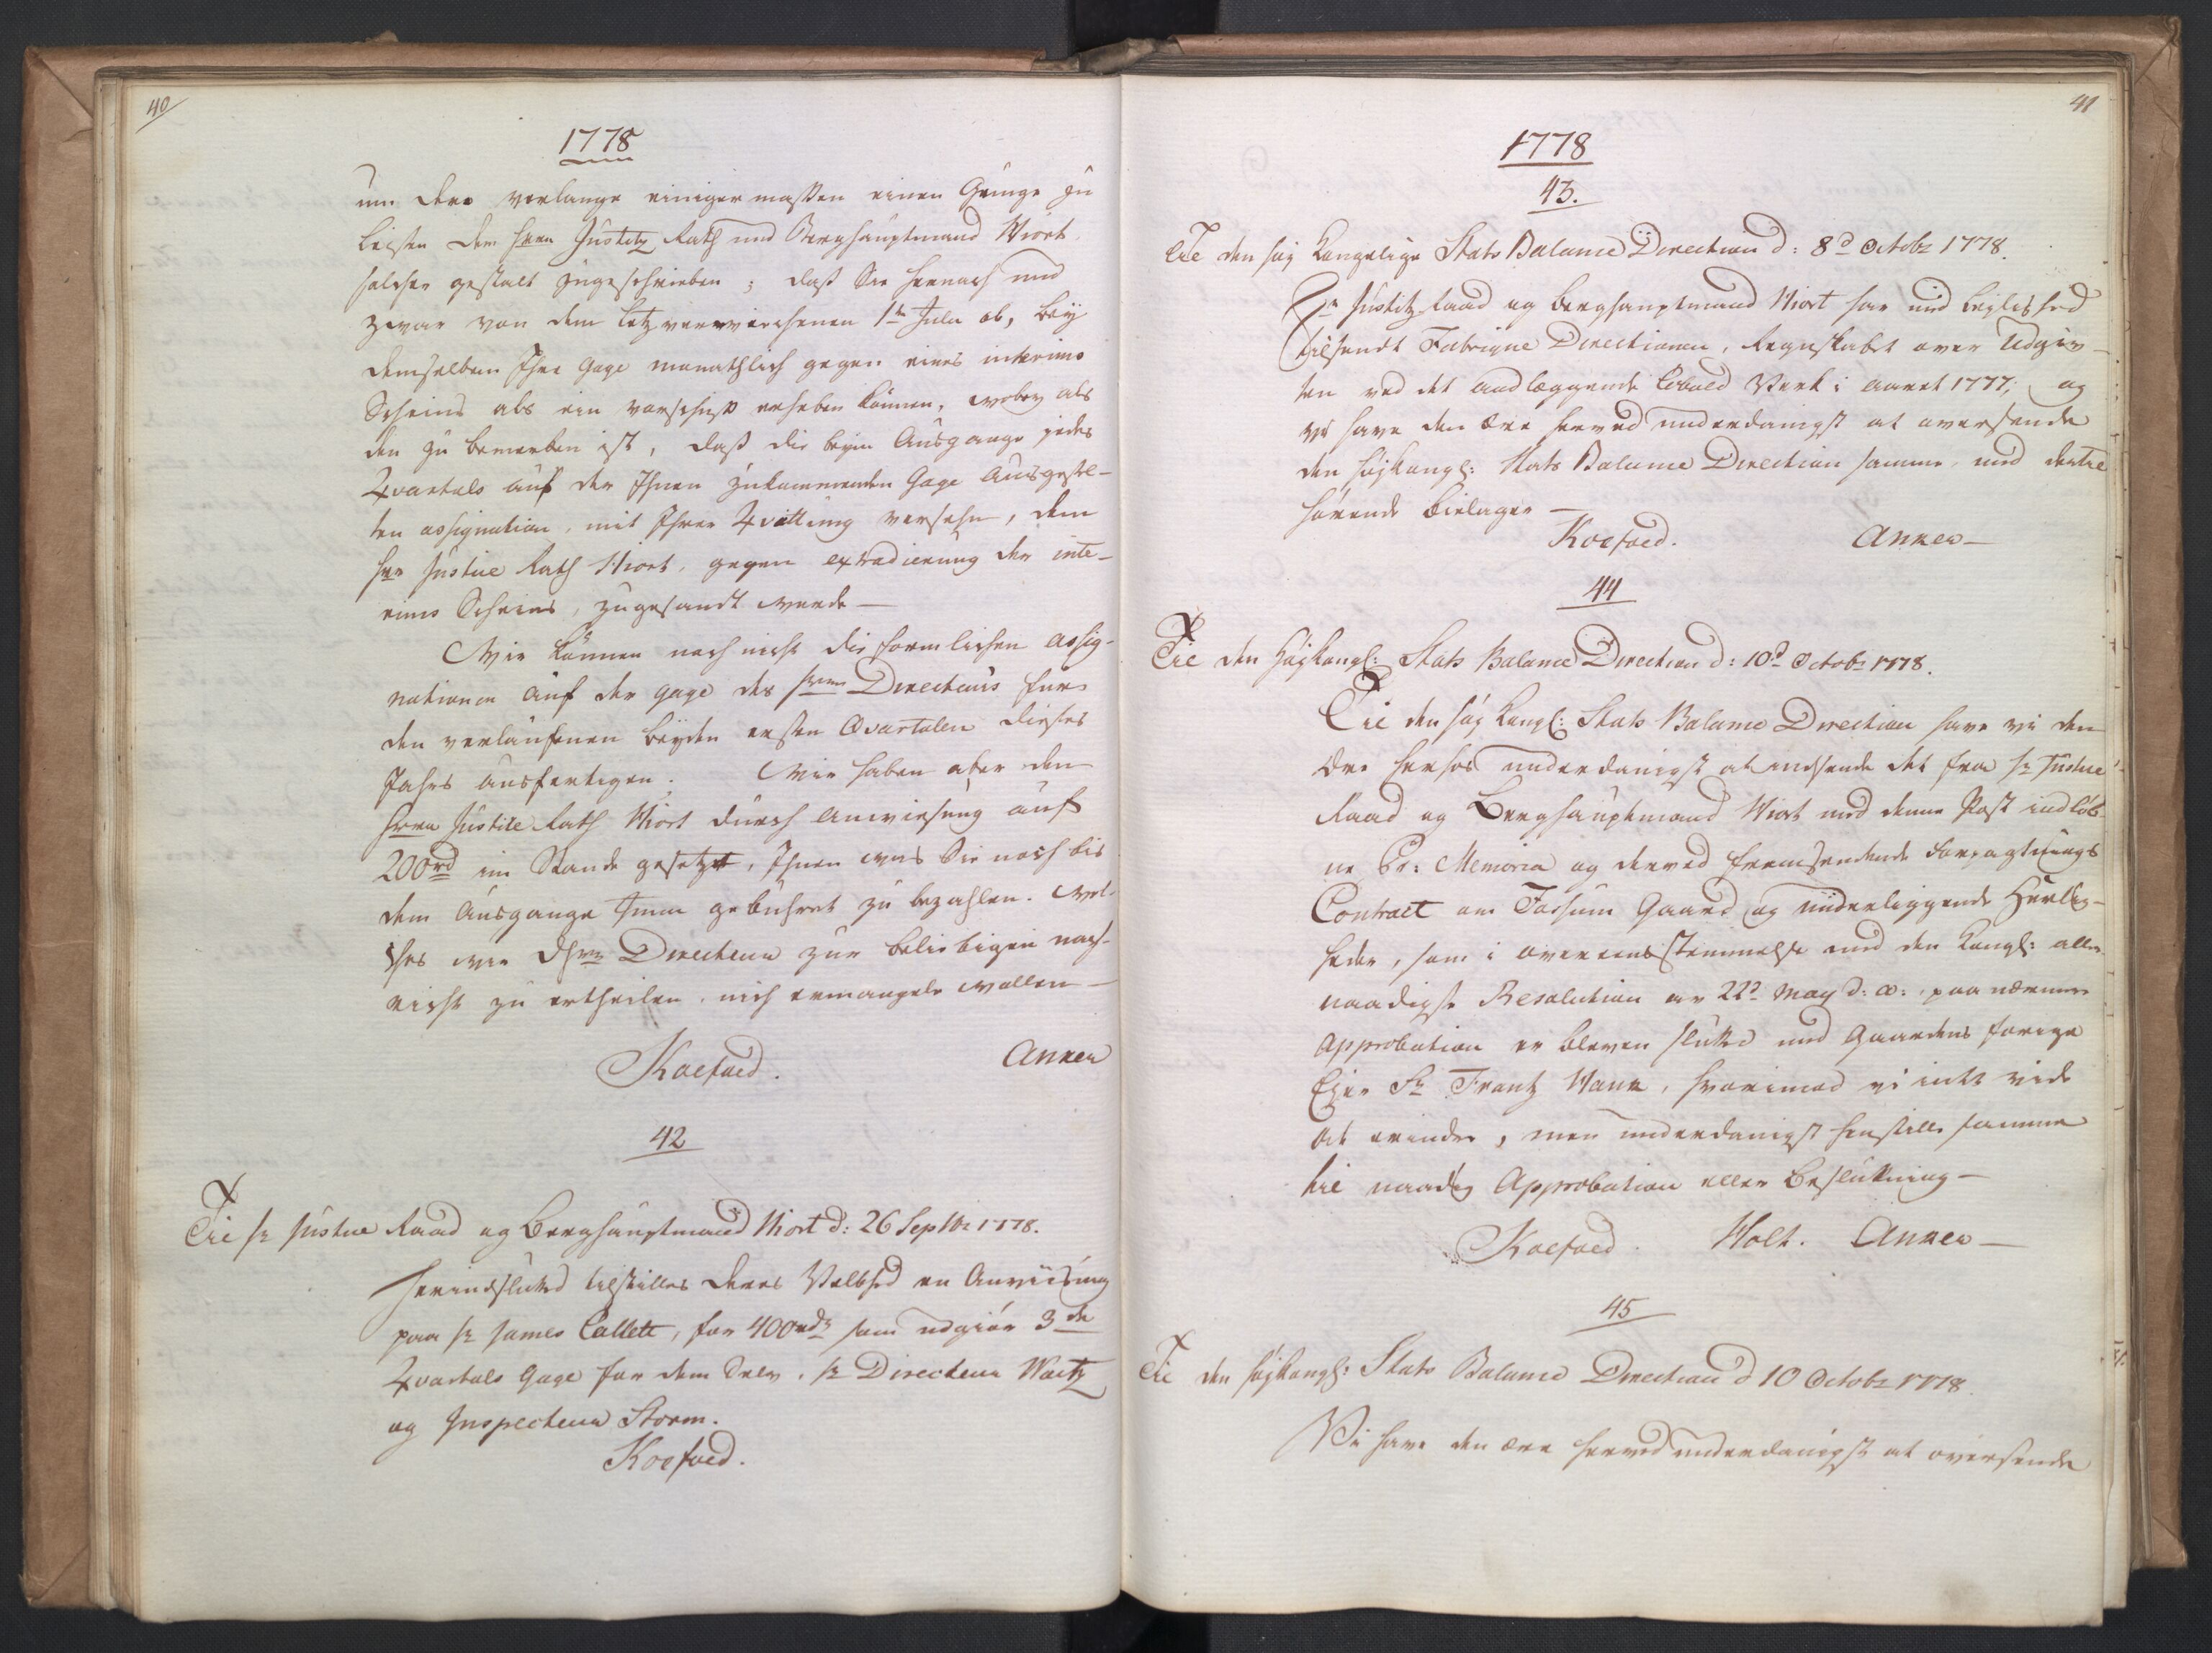 40
1778
um dero verlange einigermassen einen Genüge zu
leisten dem Herrn Justitz Rath und Berghauptmand Hiort
solcher gestalt zugeschrieben; dass Sie hernach und
zwar von dem letzverwichenen 1te Julii ab, bey
demselben Ihre Gage monathlich gegen eines interims
Scheins als ein vorschuss erheben können, wobey als
den zu bemerken ist, dass die beym Ausgange jedes
Qvartals auf der Ihnen zukommenden Gage Ausgestel-
ten assignation, mit Ihrer Qvittung versehn, dem
Herr Justice Rath Hiort, gegen extradierung der inte-
rims Scheins, zugesandt werde —
Wir können noch nicht die formlichen assig-
nationen auf der gage des Herrn Directeurs fur
den verlaufenen beyden ersten Qvartalen dieses
Jahrs ausfertigen. Wir haben aber den
Herrn Justice Rath Hiort durch anweisung auf
200rd im Stande gesetzt, Ihnen was Sie noch bis
dem Ausgange Junii gebühret zu bezahlen. Wel-
ches wir Hrn Directeur zur beliebigen nach-
richt zu ertheilen, nich ermangeln wollen —
Koefoed. Anker
42
Til Hr Justice Raad og Berghauptmand Hiort d: 26 Septbr 1778.
Herindslutted tilstilles Deres Velbhd en Anviisning
paa Hr James Collett, for 400rdr som udgiør 3de
Qvartals Gage for dem Selv, Hr Directeur Waitz
og Inspecteur Storm.
Koefoed.
41
1778
43.
Til den høy Kongelige Stats Balance Direction d: 8d Octobr 1778.
Hr Justitz-Raad og berghauptmand Hiort har med beleilighed
tilsendt Fabrique Directionen, Regnskabet over Udgiv-
ten ved det andlæggende Cobold Verk i aaret 1777, og
vi have den ære herved underdanigst at oversende
den høyKongl: Stats Balance Direction samme, med dertil
hørende bielager —
Koefoed. Anker —
44
Til den HøyKongl: Stats Balance Direction d: 10d Octobr 1778.
Til den høy Kongl: Stats Balance Direction have vi den
Ære herhos underdanigst at indsende det fra Hr Justice
Raad og Berghauptmand Hiort med denne Post indløb-
ne Pr: Memoria og derved fremsendende Forpagtnings
Contract om Fossum Gaard og underliggende Herlig-
heder, som i overeensstemmelse med den Kongl: aller
naadigste Resolution av 22d May d: a: paa nærmere
Approbation er bleven sluttet med Gaardens forige
Ejer Sr Frantz Hauk, hvorimod vi intet vide
at erindre, men underdanigst henstille samme
til naadig Approbation eller beslutning —
Koefoed. Holt. Anker —
45
Til den høyKongl: Stats Balance Direction d 10 Octobr 1778.
Vi have den ære herved underdanigst at oversende